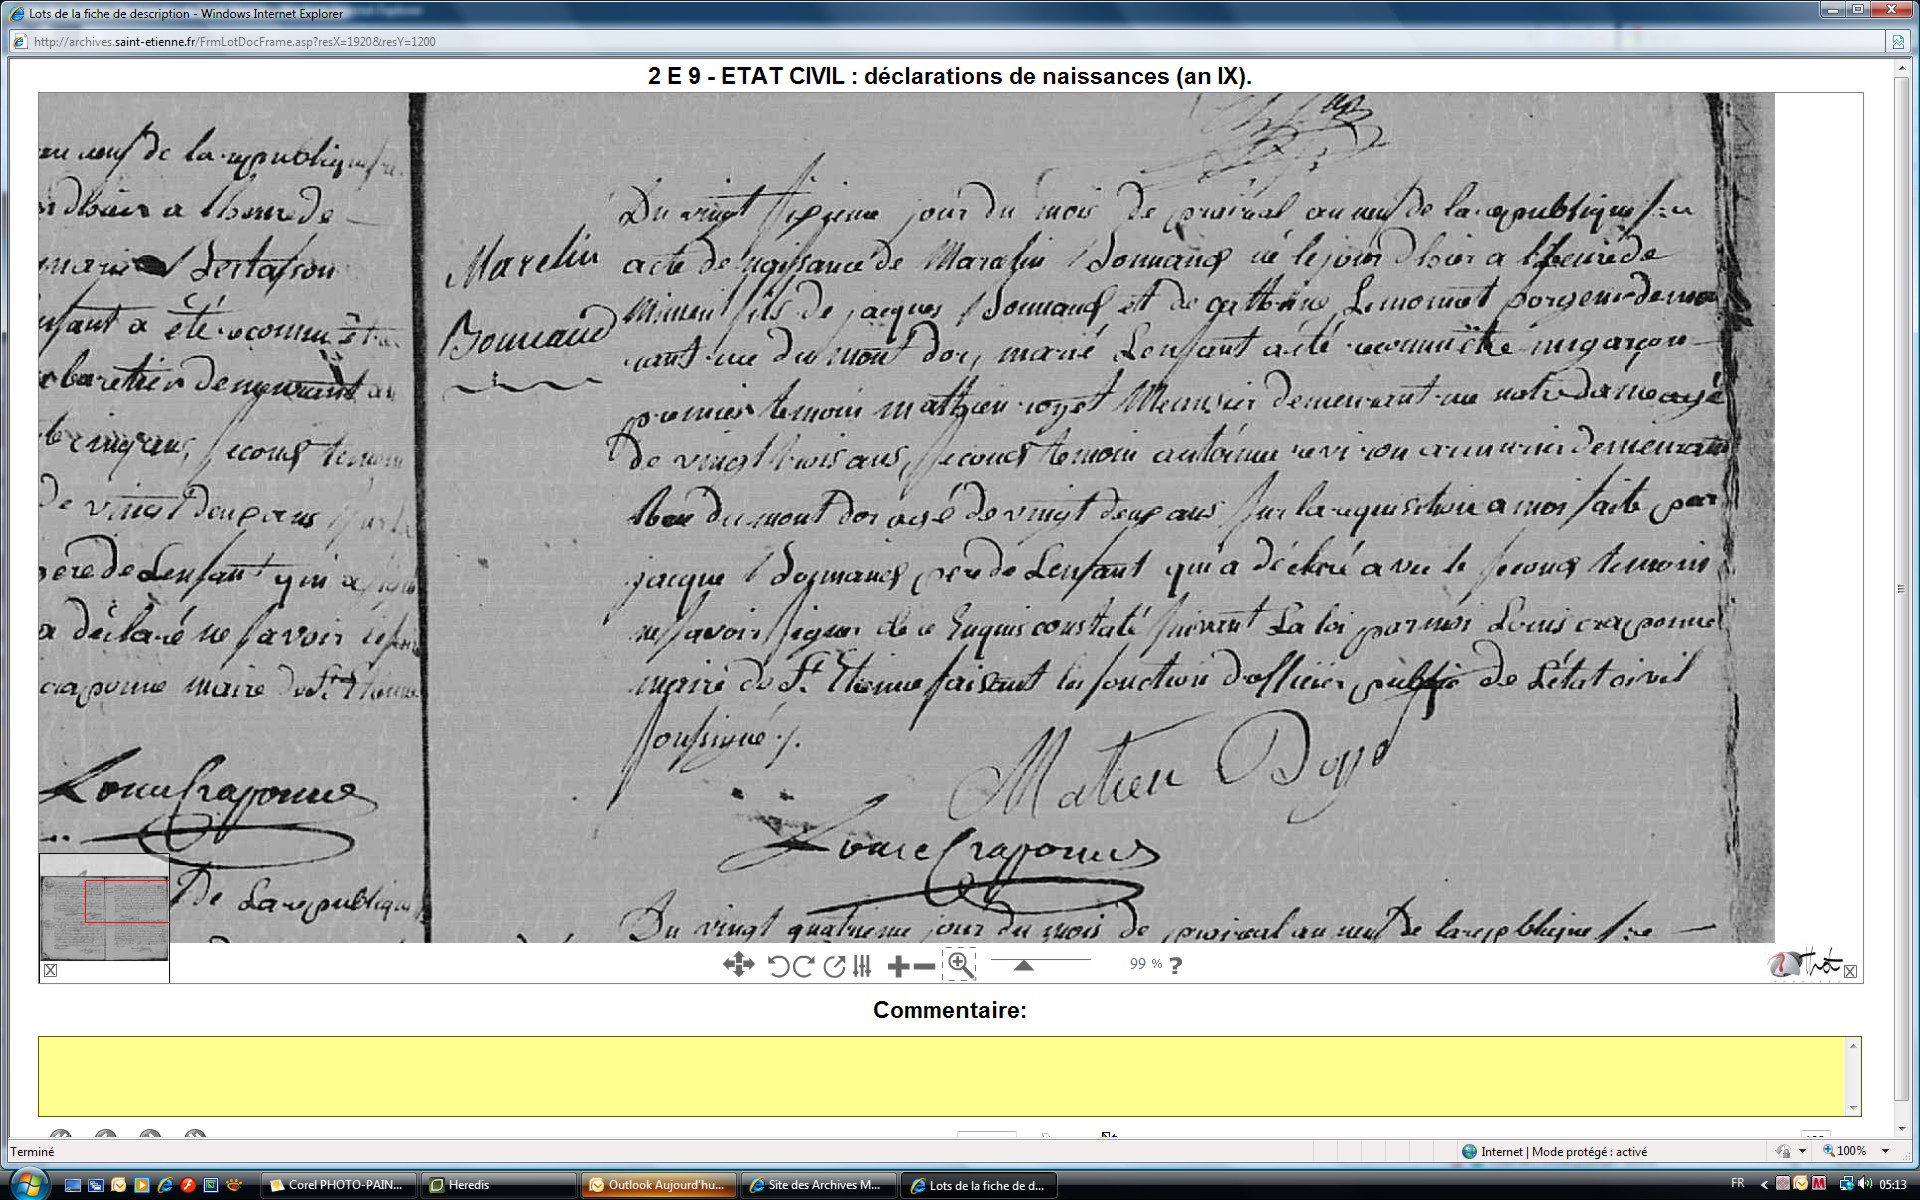 Lots de la fiche de description - Windows Internet Explorer
http://archives.saint-etienne.fr/FrmLotDocFrame.asp?resX=1920&resY=1200
2 E 9 - ETAT CIVIL : déclarations de naissances (an IX).
neuf de la republique
d'hier a lheure de
marie
enfant a été reconnu
cabaretier demeurant
second temoin
de vingt deux ans
père de Lenfant qui a
a déclaré ne savoir
craponne maire de St Etienne
Louis Craponne
De La republique
Marelin
Bonnand
Du vingt sixieme jour du mois de prairial an neuf de la republique fre
acte de naissance de Maralin Bonnand né le jour d'hier a lheure de
Minuit fils de jacques Bonnand et de cathérine Limonnet forgeur demeu
rant rue du mont dor, marié Lenfant a été reconnu être un garçon
premier temoin mathieu royet Menusier demeurant rue notre dame agé
de vingt trois ans, second temoin antoinne reviron armurier demeurant
Rue du mont dor agé de vingt deux ans sur la requisition a moi faite par
jacque Bonnand père de Lenfant qui a déclaré avec le second temoin
ne savoir signer de ce Enquis constaté suivant La loi par moi Louis craponne
maire de St Etienne faisant les fonction d'officier public de L'état civil
soussigné ./.
Matieu Royé
Louis Craponne
Du vingt quatrieme jour du mois de prairial an neuf de la republique fre
99 % ?
Commentaire:
Terminé
Internet | Mode protégé : activé
100%
Corel PHOTO-PAIN...
Heredis
Outlook Aujourd'hu...
Site des Archives M...
Lots de la fiche de d...
FR
05:13